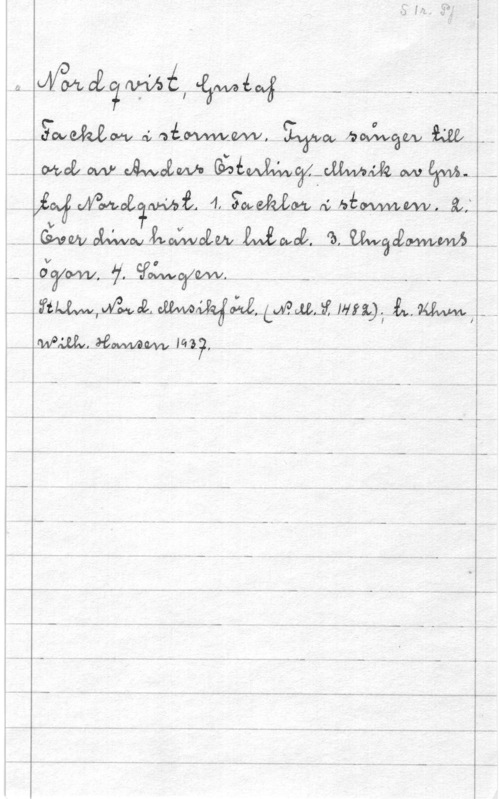 S 1r. Pf
Nordqvist, Gustaf
Facklor i stormen. Fyra sånger till
ord av Anders Österling. Musik av Gus-
taf Nordqvist. 1. Facklor i stormen. 2.
Över dina händer lutad. 3. Ungdomens
ögon. 4. Sången.
Sthlm, Nord. Musikförl. (N.M.S. 1482); tr. Khvn,
Wilh. Hansen 1937.